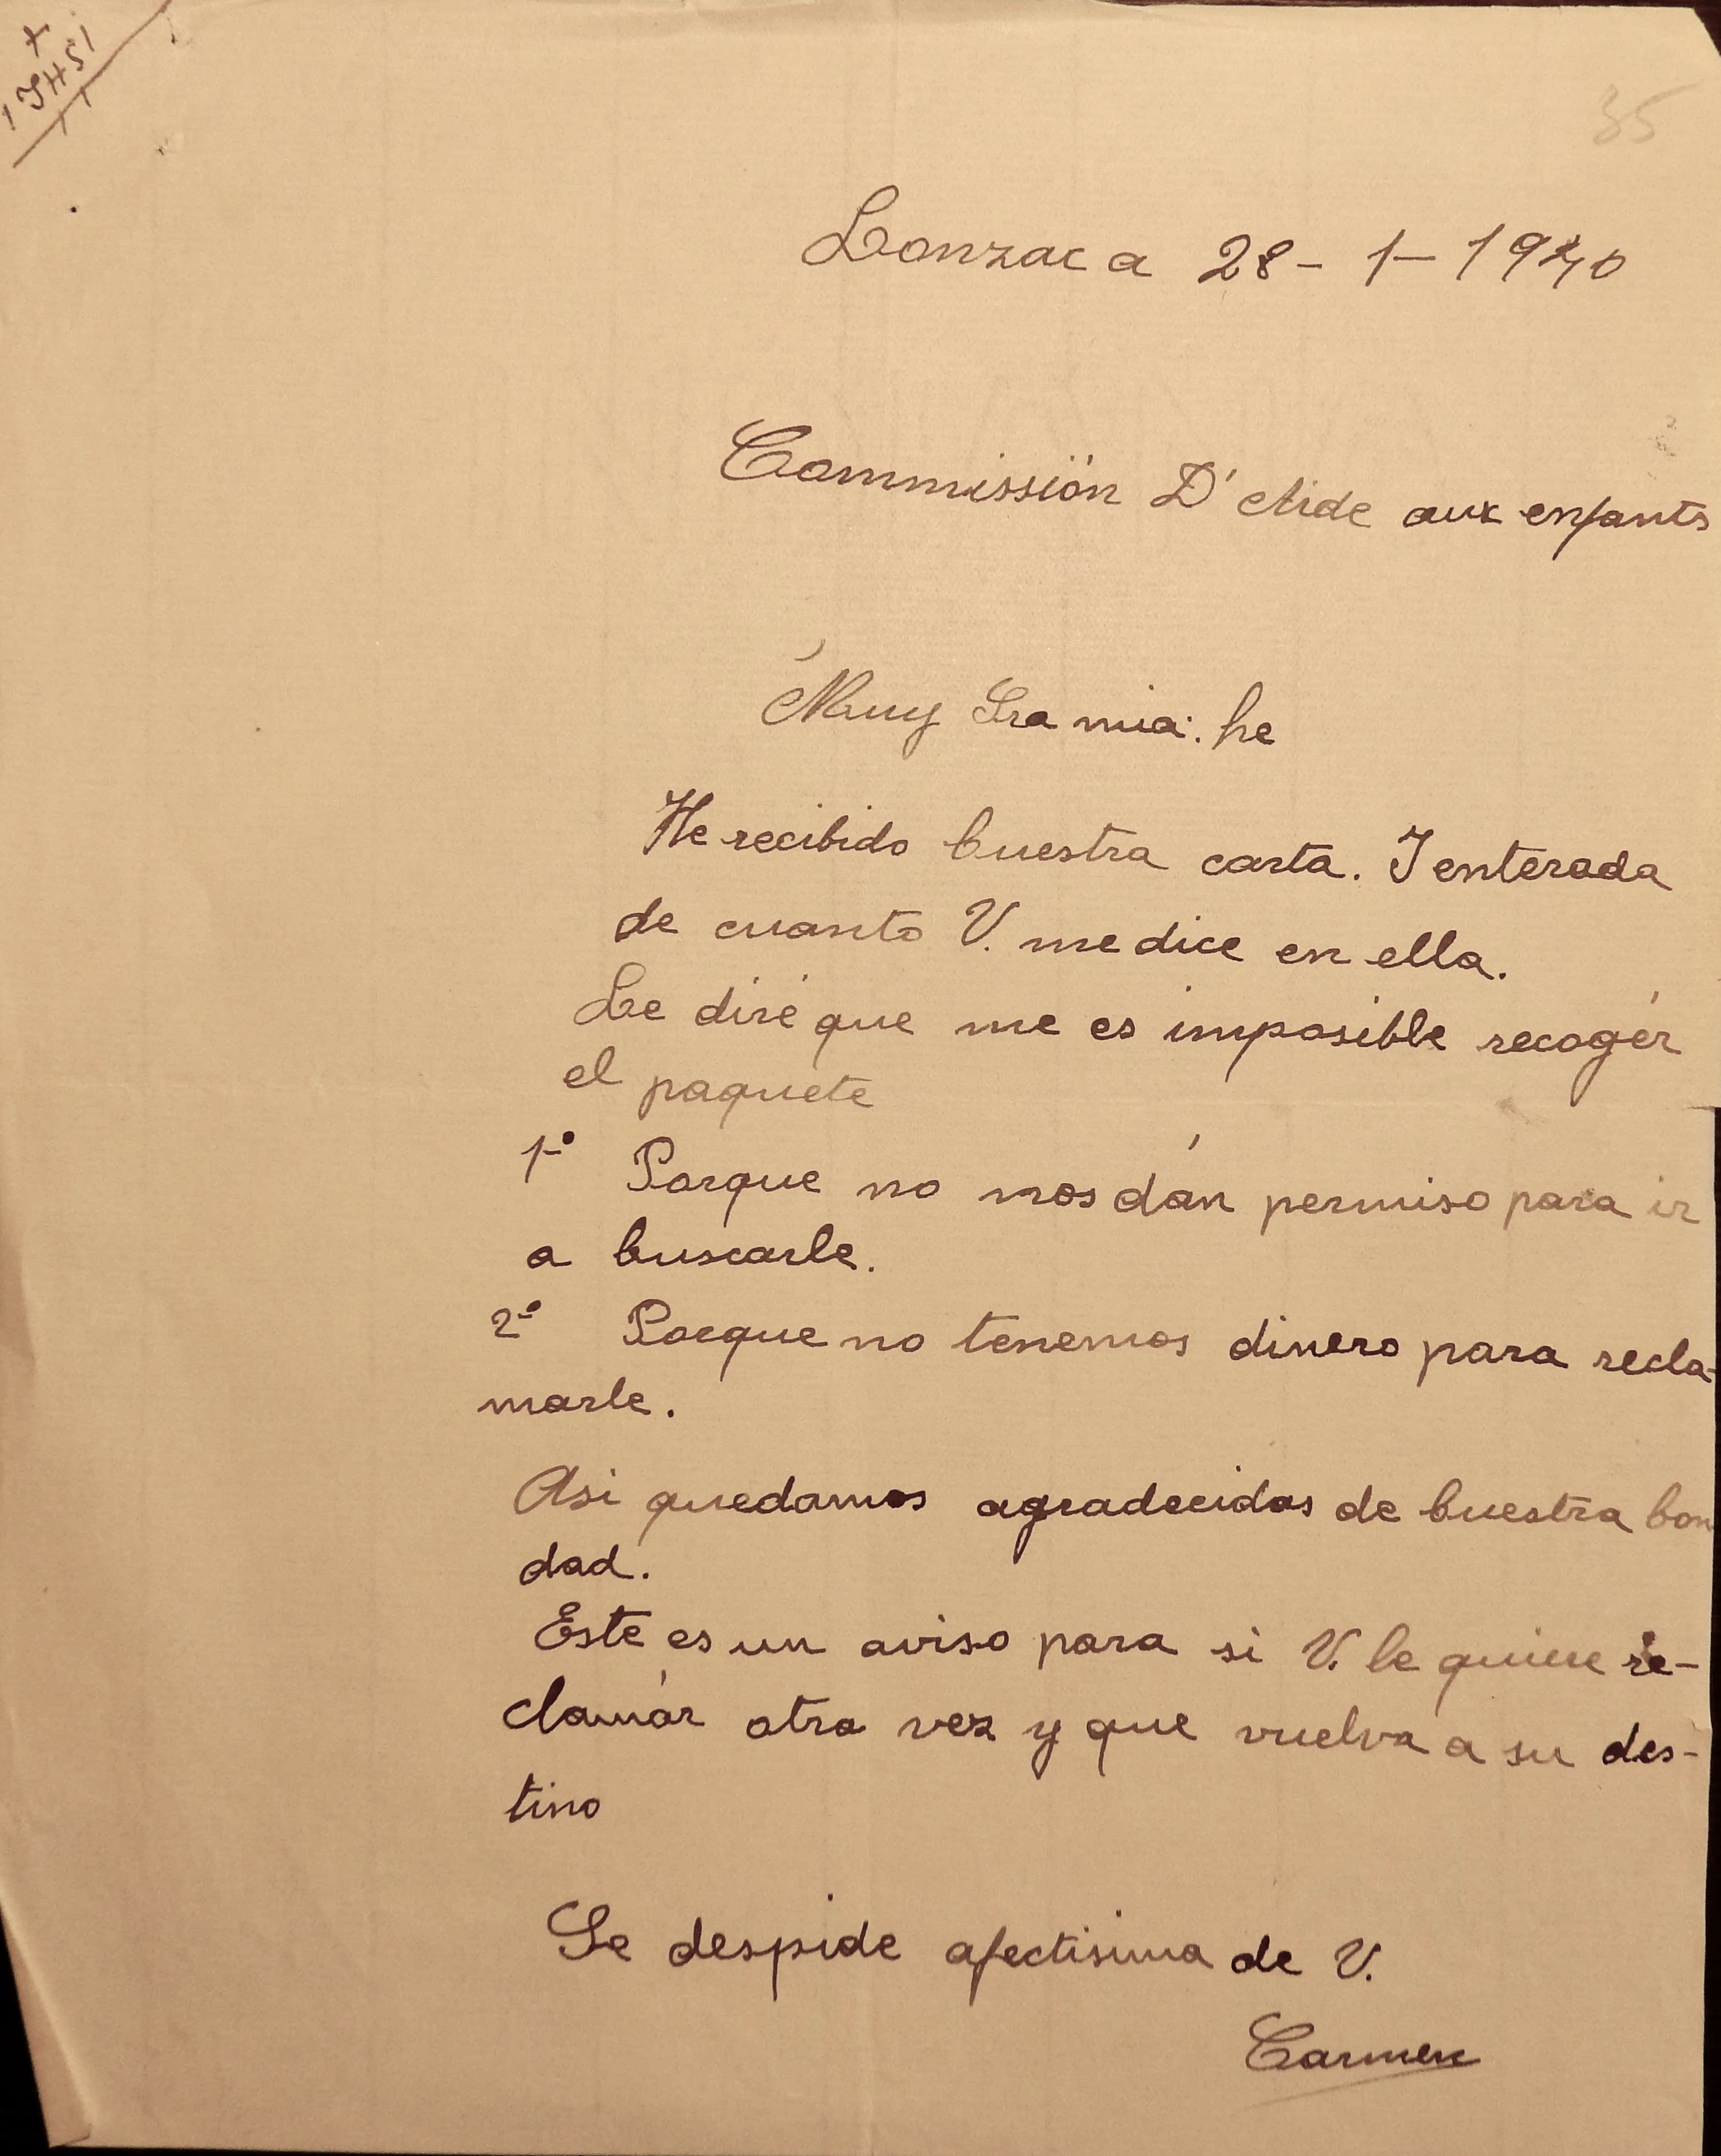 +
¡JHS!
35
Lonzac a 28-1-1940
Commissión D'Aide aux enfants
Muy Sra mia: he
He recibido buestra carta. I enterada
de cuanto V. me dice en ella.
Le diré que me es imposible recogér
el paquete
1º Porque no nos dán permiso para ir
a buscarle.
2º Porque no tenemos dinero para recla-
marle.
Asi quedamos agradecidas de buestra bon
dad.
Este es un aviso para si V. le quiere re-
clamár otra vez y que vuelva a su des-
tino
Se despide afectisima de V.
Carmen